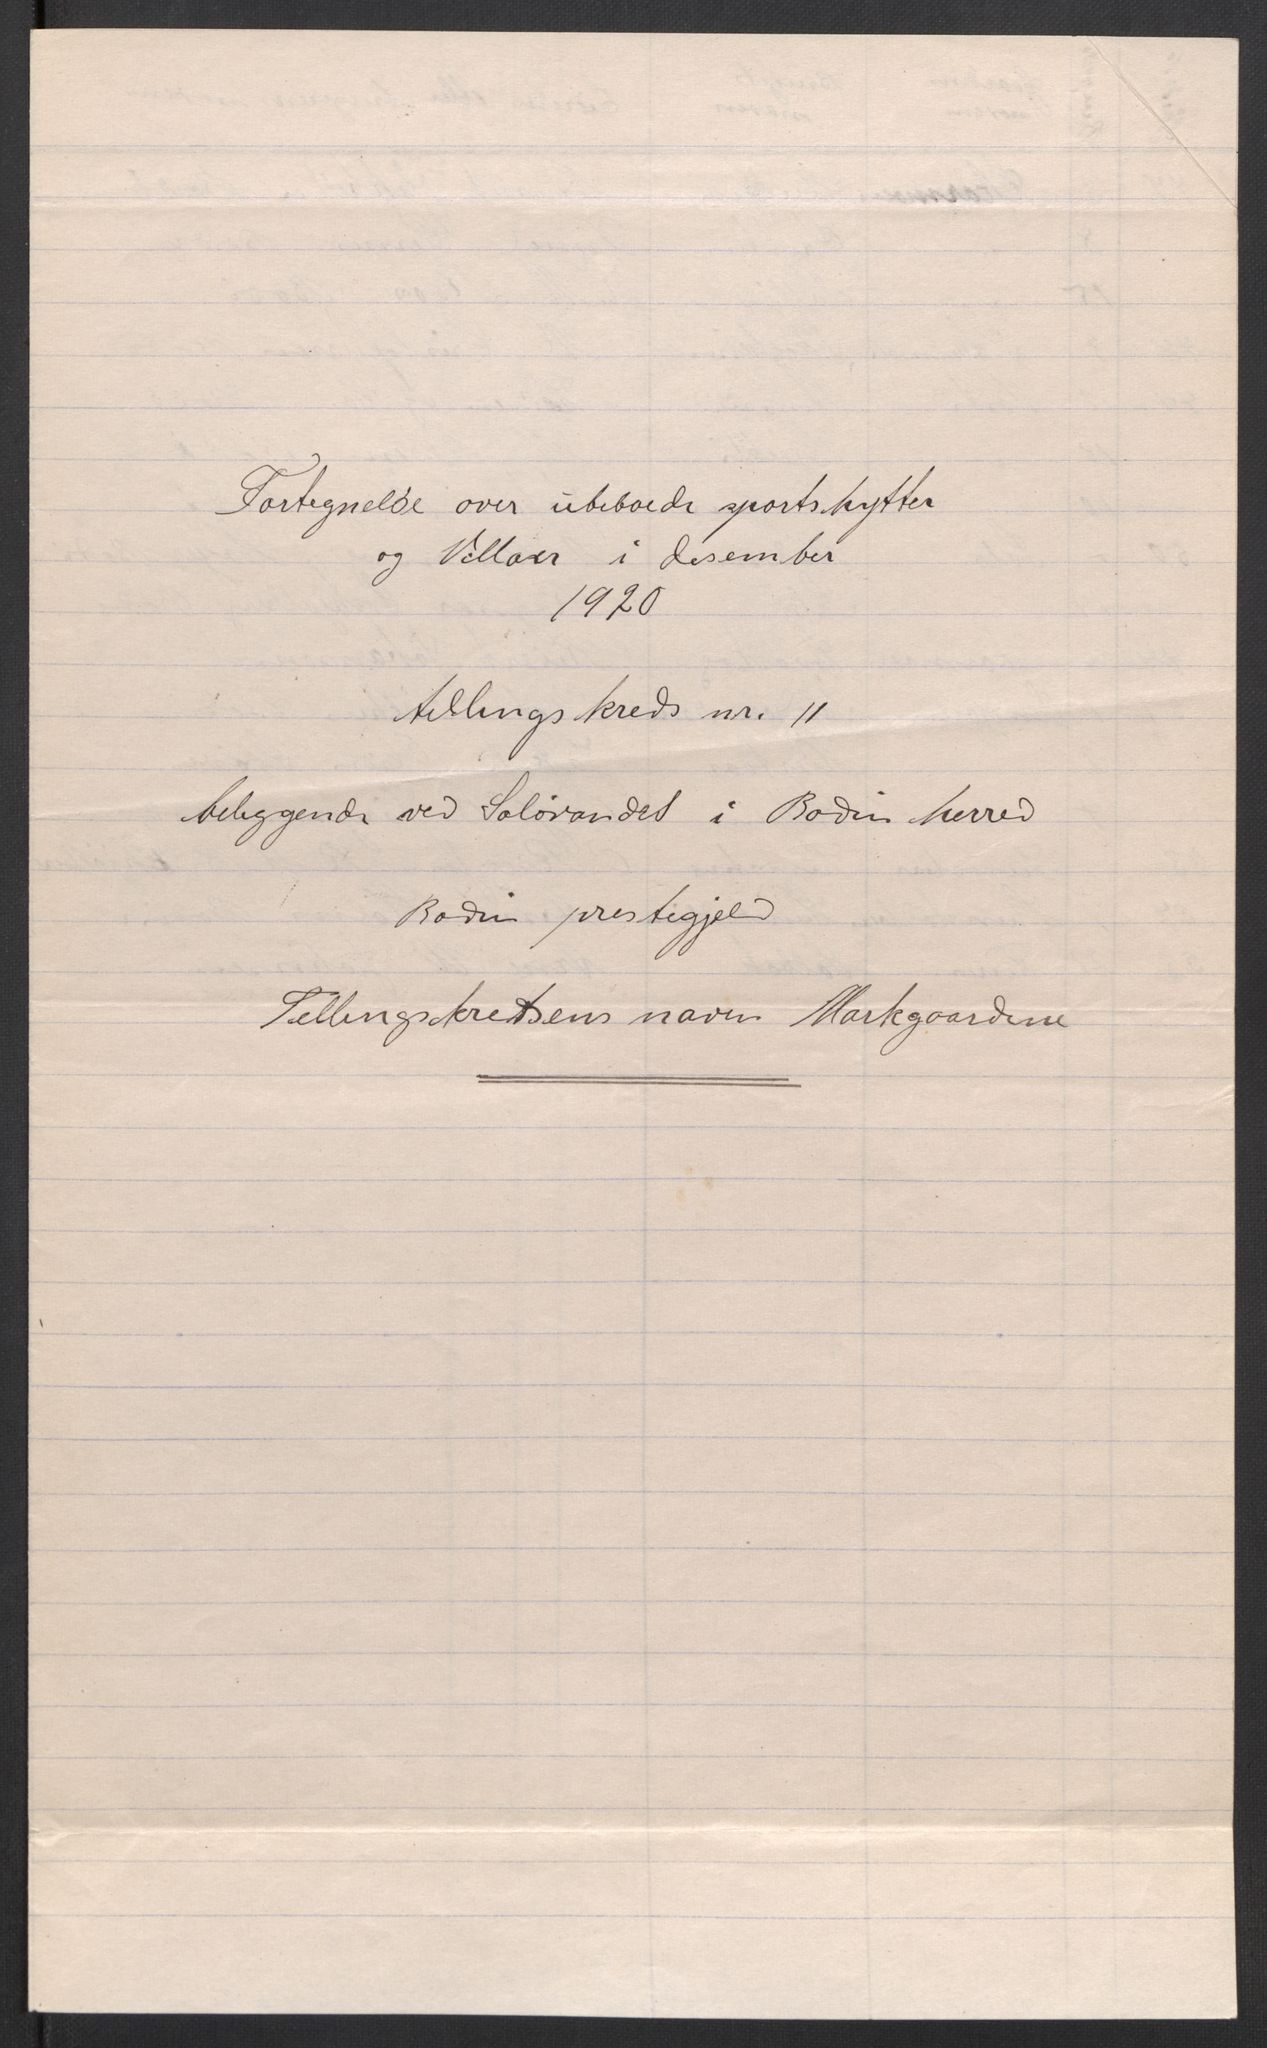 Fortegnelse over ubeboede sportshytter
og Villaer i desember
1920
tellings kreds nr. 11
beliggende ved Soløvandet i Bodin herred
Bodin prestegjeld
Tellingskretsens navn Markgaardene